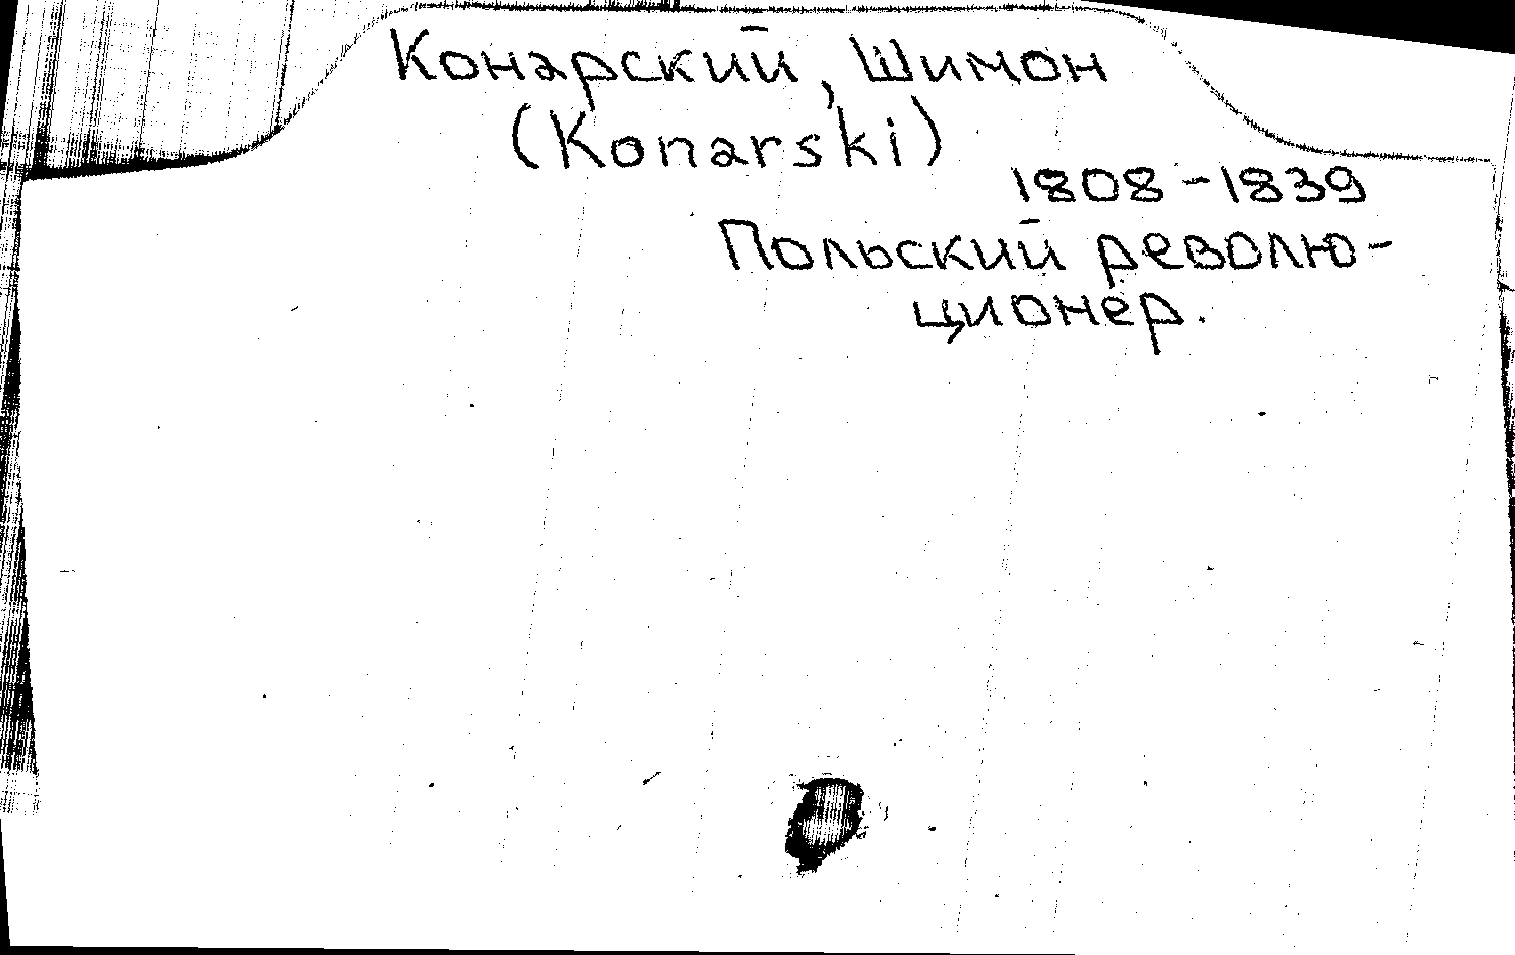 Конарский, Шимон
(Konarski)
1808-1839
Польский револю-
ционер.